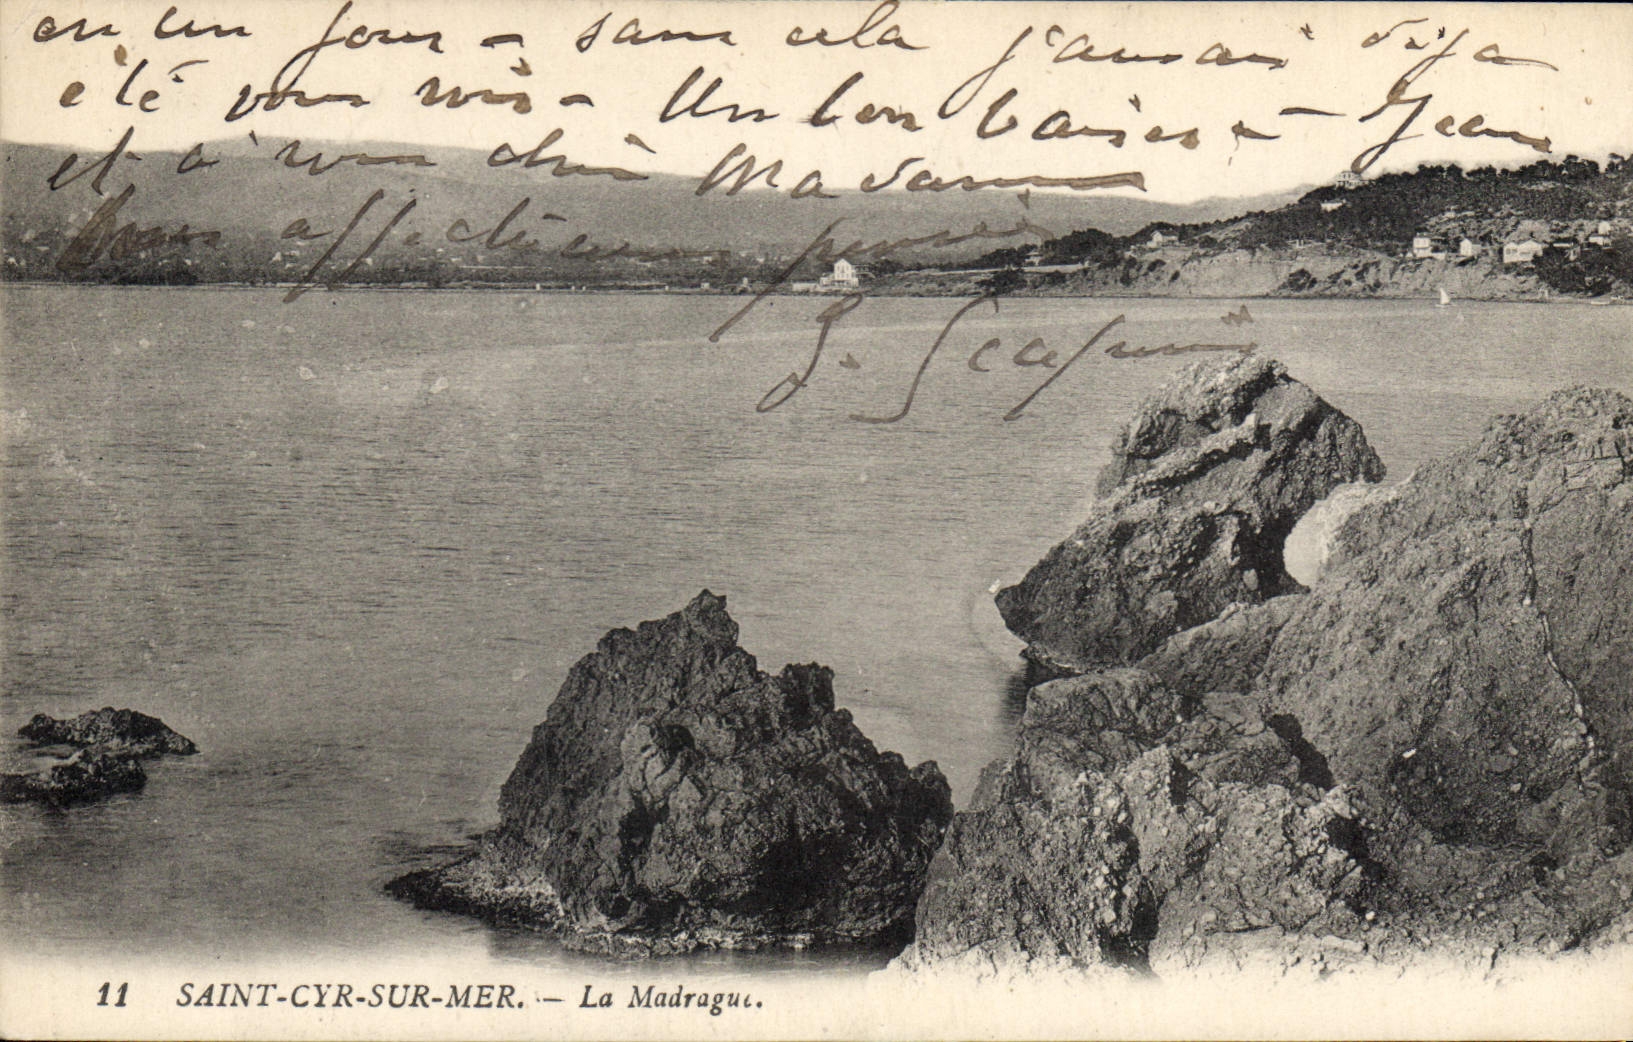 en un jour - sans cela j'aurais déja
été vous voir - Un bon baiser à Jean
et à vous chère Madame
mes affectueuses pensées
11 SAINT-CYR-SUR-MER. — La Madrague.